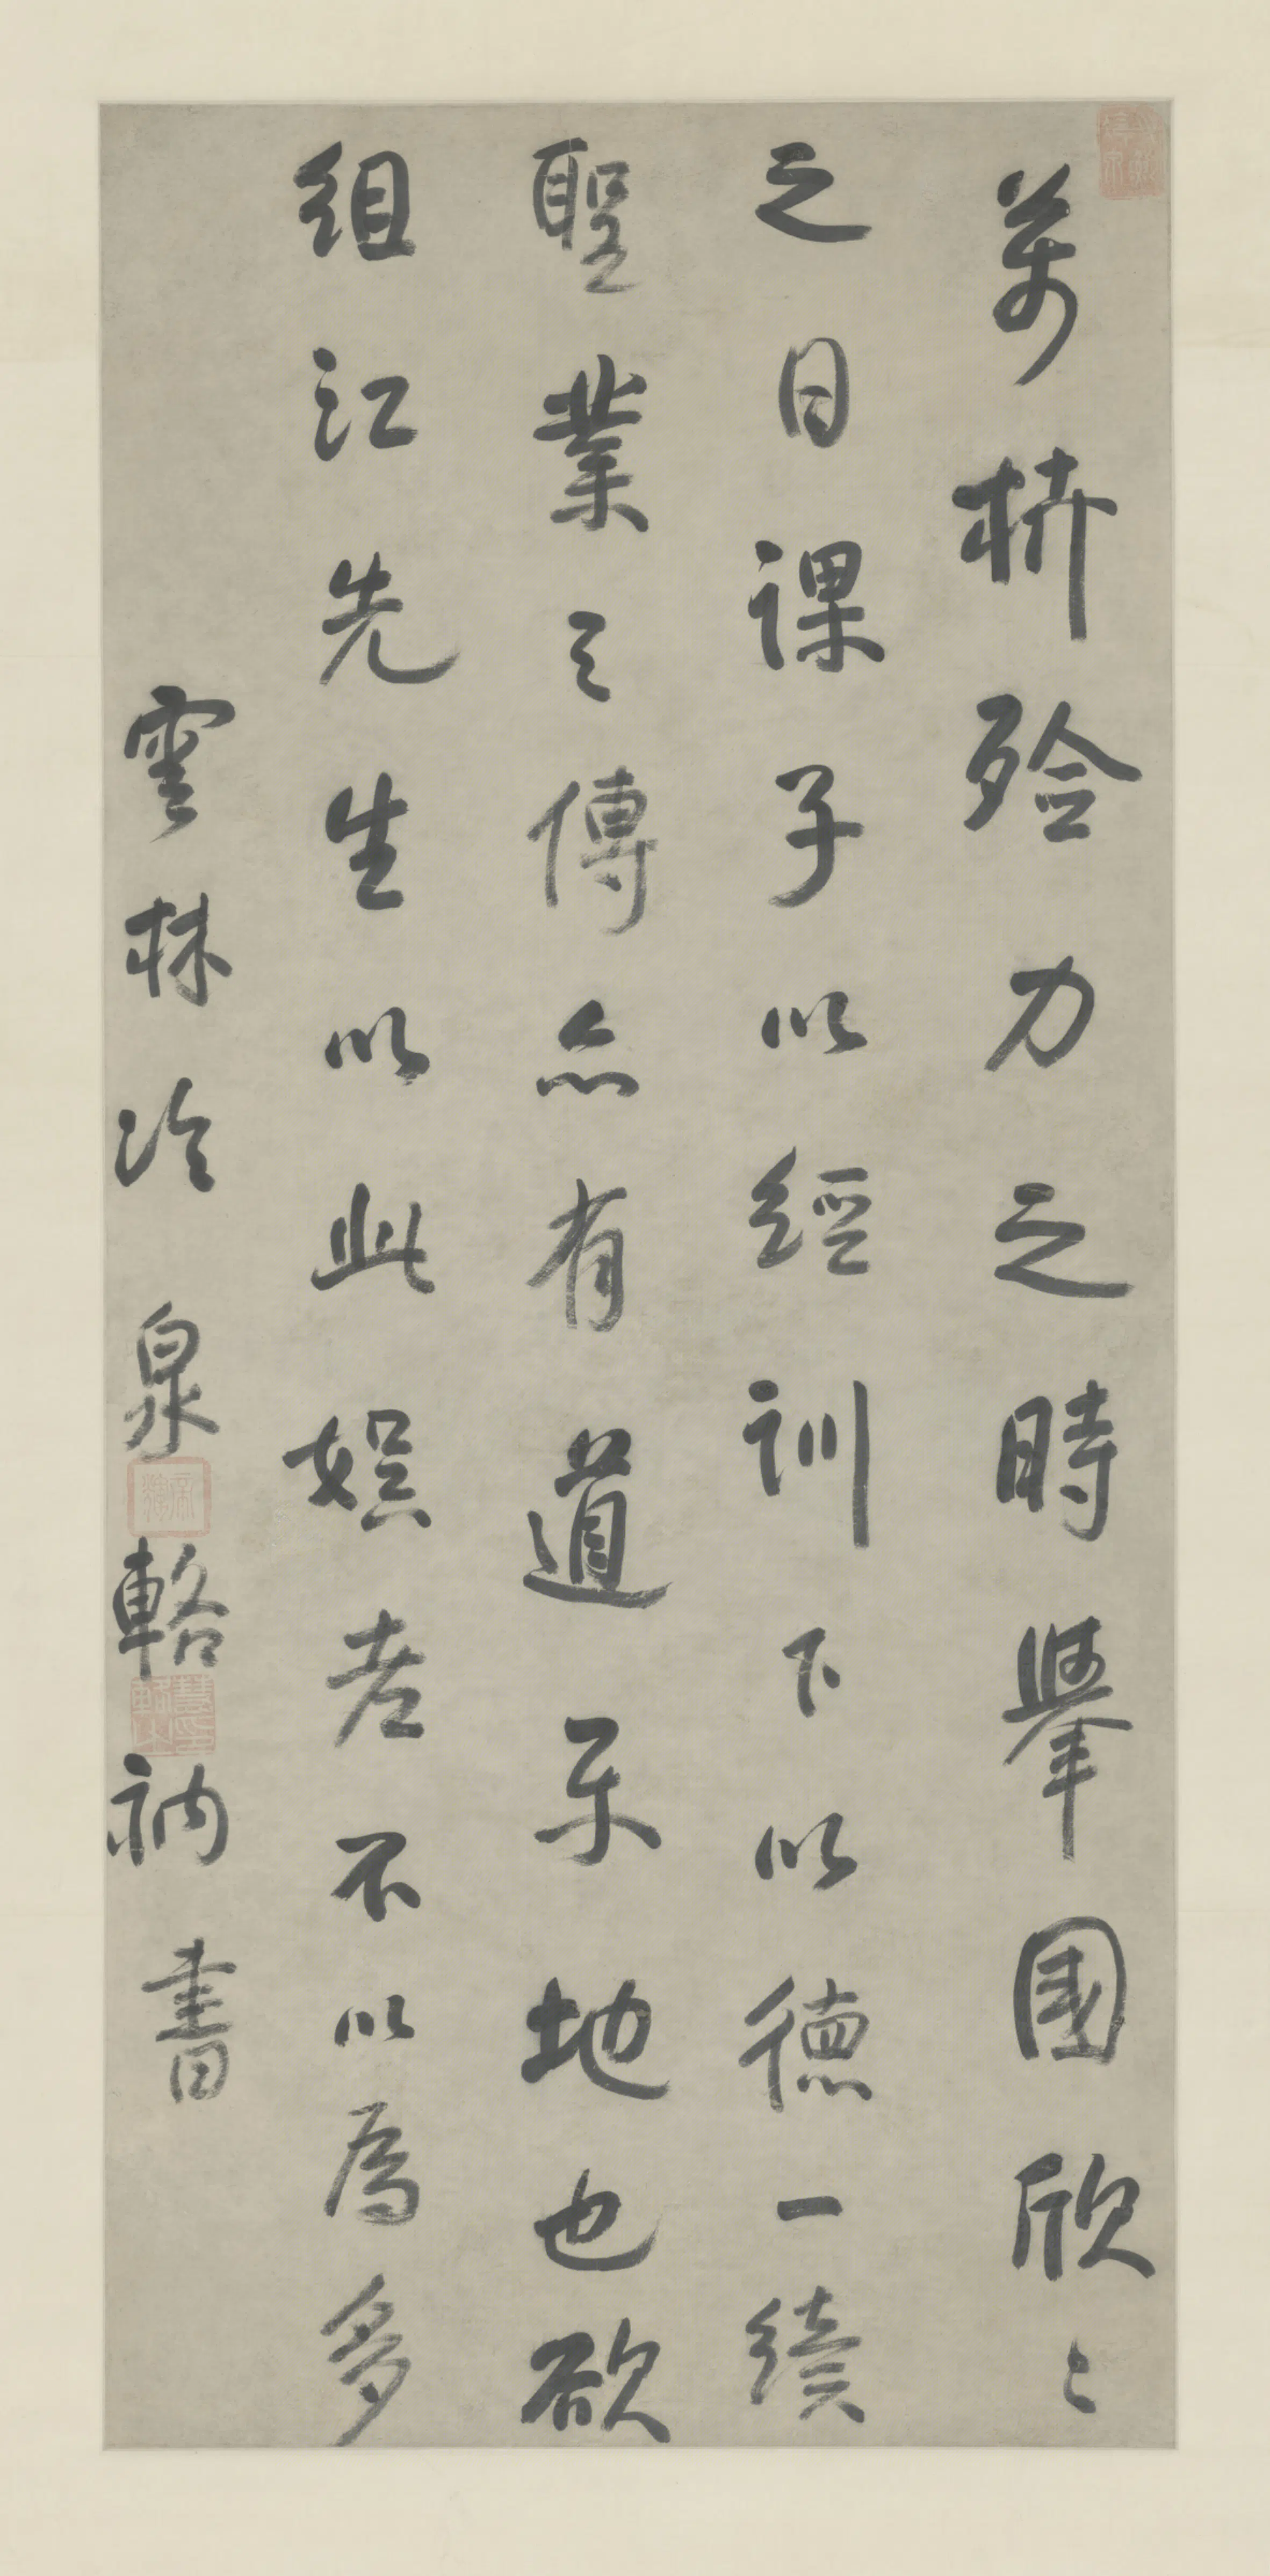 萬枿殮力之時舉國欣〻
之日課子以經訓下以德一續
聖業之傳亦有道乐地也欲
組江先生以此娯老不以為多
雲林冷泉輅衲書